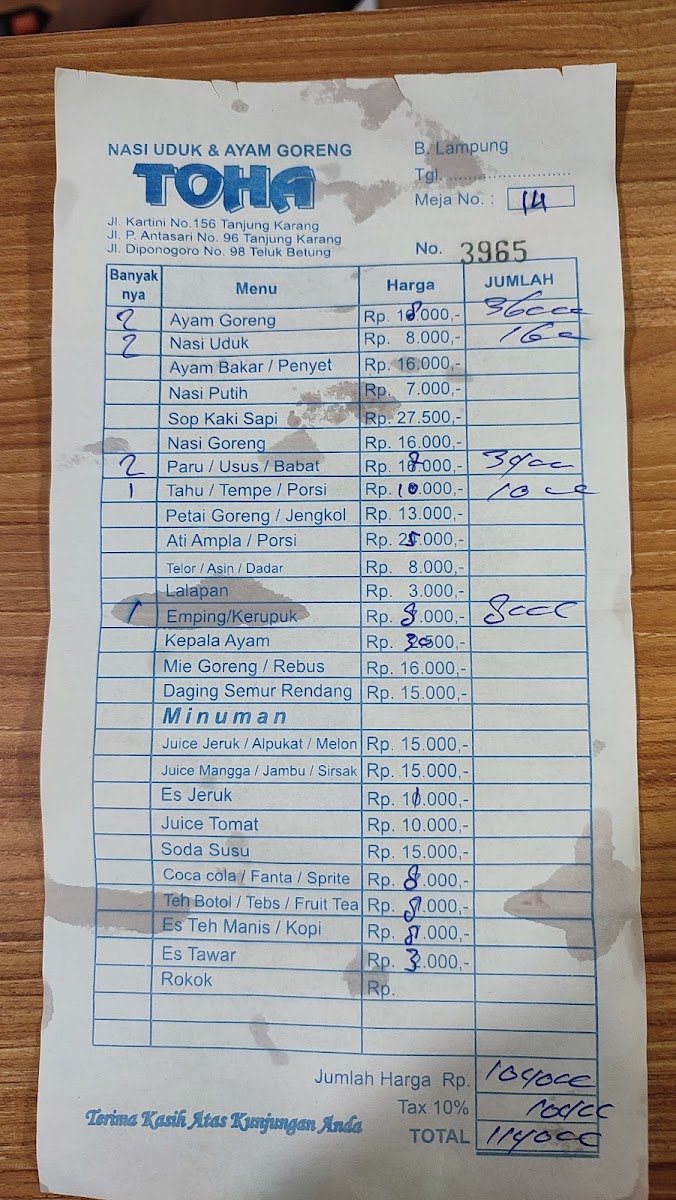 NASI UDUK & AYAM GORENG
TOHA
Jl. Kartini No.156 Tanjung Karang
Jl. P. Antasari No. 96 Tanjung Karang
Jl. Diponogoro No. 98 Teluk Betung
B. Lampung
Tgl. ..........................
Meja No. : 14
No. 3965
Banyak nya Menu Harga JUMLAH
2 Ayam Goreng Rp. 18.000,- 36000
2 Nasi Uduk Rp. 8.000,- 1600
Ayam Bakar / Penyet Rp. 16.000,-
Nasi Putih Rp. 7.000,-
Sop Kaki Sapi Rp. 27.500,-
Nasi Goreng Rp. 16.000,-
2 Paru / Usus / Babat Rp. ,-
1 Tahu / Tempe / Porsi Rp. 10.000,- 10
Petai Goreng / Jengkol Rp. 13.000,-
Ati Ampla / Porsi Rp. 25.000,-
Telor / Asin / Dadar Rp. 8.000,-
Lalapan Rp. 3.000,-
1 Emping/Kerupuk Rp. 8.000,- 8000
Kepala Ayam Rp.
Mie Goreng / Rebus Rp. 16.000,-
Daging Semur Rendang Rp. 15.000,-
Minuman
Juice Jeruk / Alpukat / Melon Rp. 15.000,-
Juice Mangga / Jambu / Sirsak Rp. 15.000,-
Es Jeruk Rp. 11.000,-
Juice Tomat Rp. 10.000,-
Soda Susu Rp. 15.000,-
Coca cola / Fanta / Sprite Rp. 8.000,-
Teh Botol / Tebs / Fruit Tea Rp. 8.000,-
Es Teh Manis / Kopi Rp. 8.000,-
Es Tawar Rp. 3.000,-
Rokok Rp.
Jumlah Harga Rp. 104000
Tax 10% 10400
TOTAL 114000
Terima Kasih Atas Kunjungan Anda